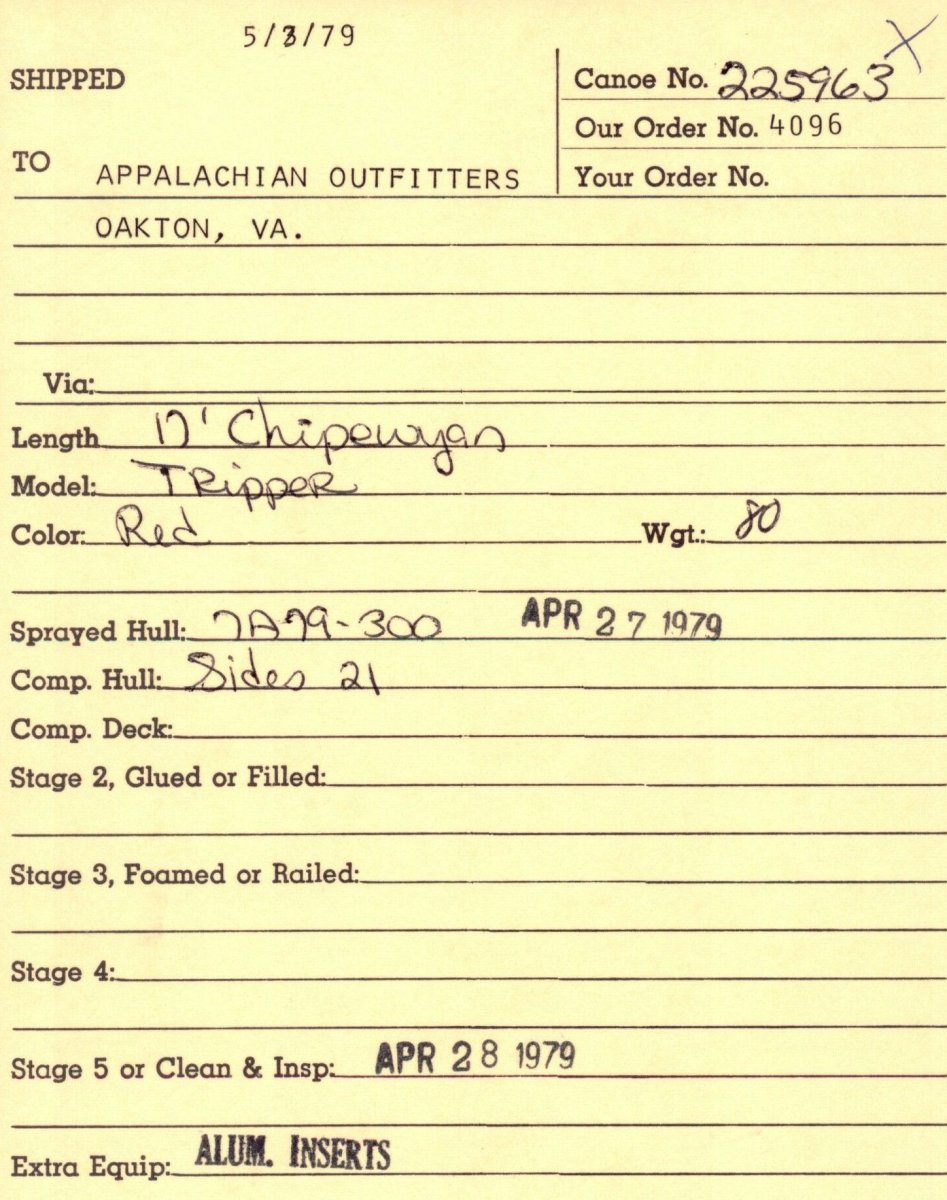 5/3/79
SHIPPED
Canoe No. 225963
Our Order No. 4096
TO APPALACHIAN OUTFITTERS
Your Order No.
OAKTON, VA.
Via:
Length 17' Chipewyan
Model: TRipper
Color: Red Wgt.: 80
Sprayed Hull: 7A79-300 APR 27 1979
Comp. Hull: Sides 21
Comp. Deck:
Stage 2, Glued or Filled:
Stage 3, Foamed or Railed:
Stage 4:
Stage 5 or Clean & Insp: APR 28 1979
Extra Equip: ALUM. INSERTS